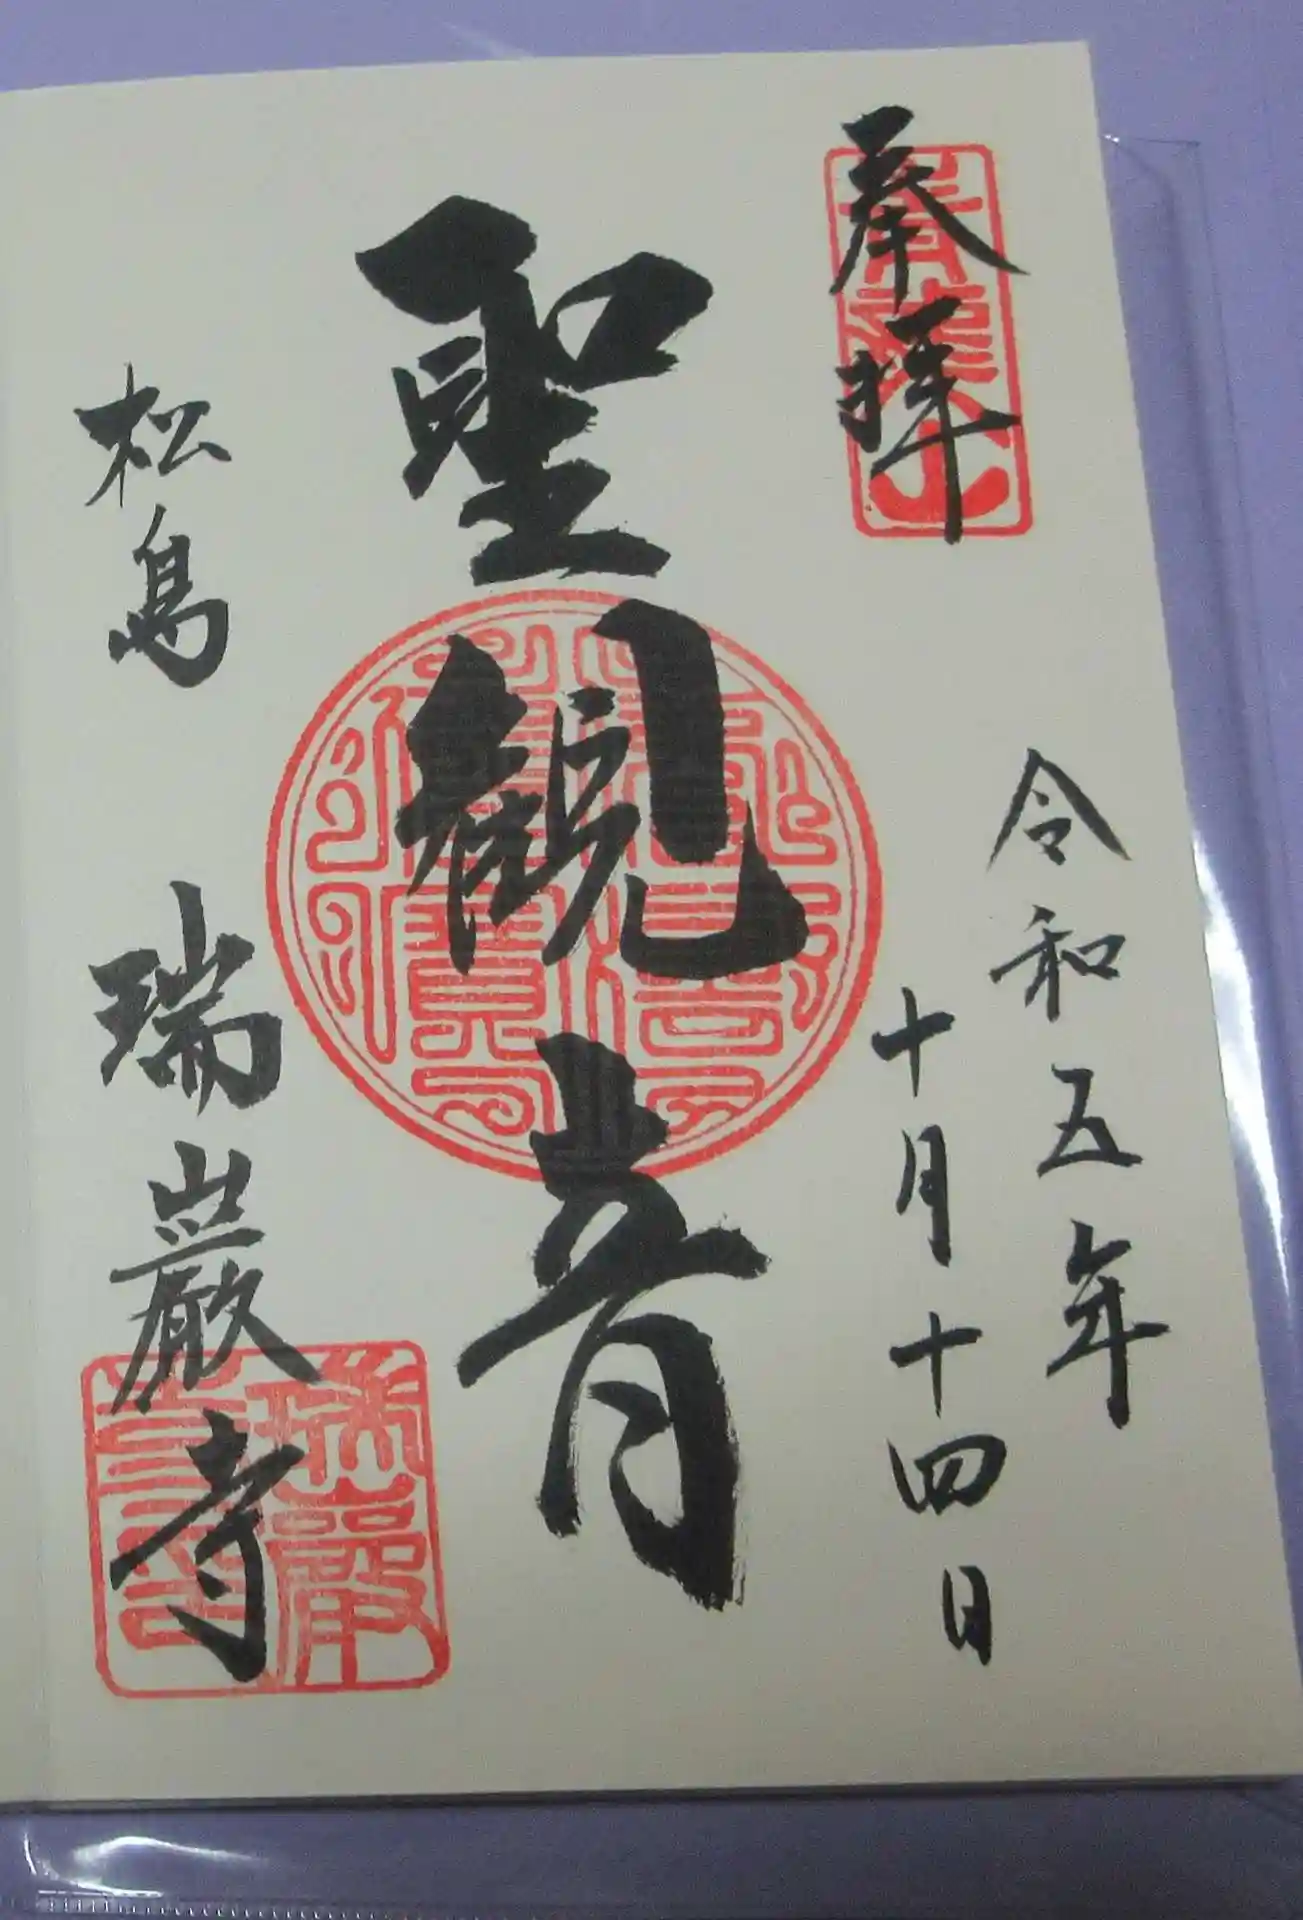 奉拝
令和五年
十月十四日
聖観音
松島 瑞巌寺